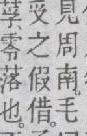 見周南。毛
受之假借。
莩、零落也。